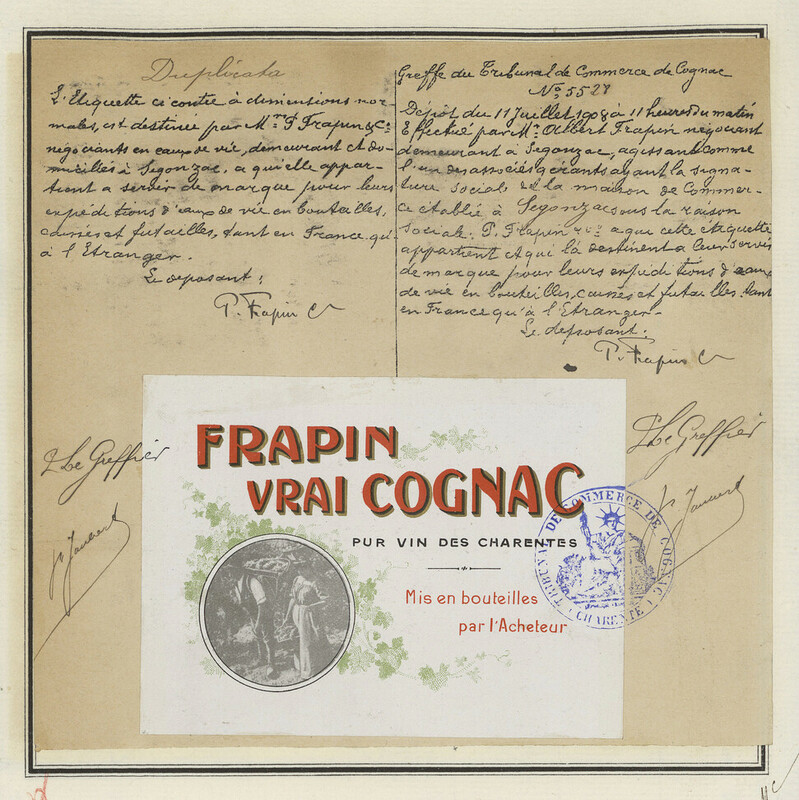 Duplicata
L'Etiquette ci contre à dimensions nor-
males, est destinée par Mrs P. Frapin & Co
négociants en eaux de vie, demeurant et do-
miciliés à Segonzac, a qu'elle appar-
tient a servir de marque pour leurs
expéditions d'eaux de vie en bouteilles,
caisses et futailles, tant en France qu'
à l'Etranger.
Le deposant :
P. Frapin Co
Greffe du Tribunal de Commerce de Cognac
No 5521
Dépôt du 11 Juillet 1908 à 11 heures du matin
Effectué par Mr Albert Frapin négociant
demeurant à Segonzac, agissant comme
l'un des associés gérants ayant la signa-
ture sociale de la maison de Commer-
ce établie à Segonzac sous la raison
Sociale. P. Frapin & Co a qui cette étiquette
appartient et qui la destinent a leur servir
de marque pour leurs expéditions d'eaux
de vie en bouteilles, caisses et futailles. tant
en France qu'à l'Etranger-
Le deposant.
P. Frapin Co
Le Greffier
Le Greffier
FRAPIN
VRAI COGNAC
PUR VIN DES CHARENTES
Mis en bouteilles
par l'Acheteur
TRIBUNAL DE COMMERCE DE COGNAC
(CHARENTE)